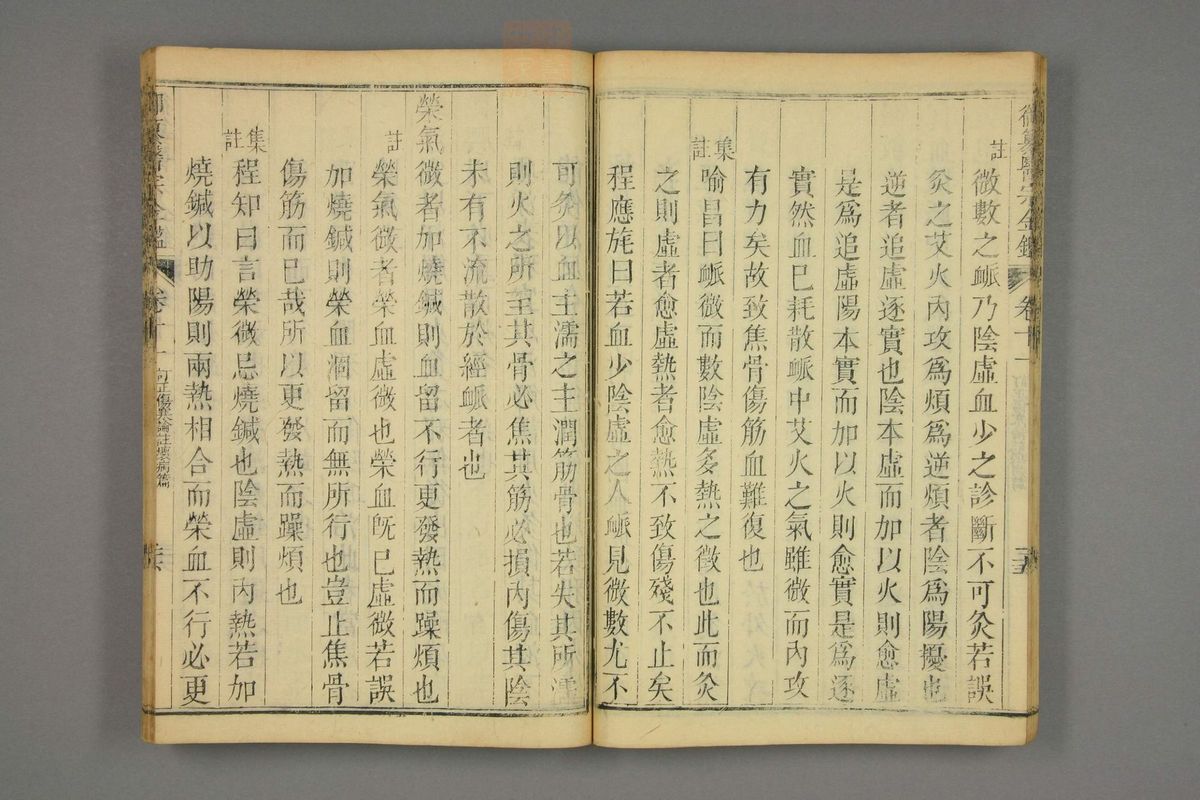 御纂醫宗金鑑 卷十一
註
微數之衇乃陰虛血少之診斷不可灸若誤
灸之艾火內攻爲煩爲逆煩者陰爲陽擾也
逆者追虛逐實也陰本虛而加以火則愈虛
是爲追虛陽本實而加以火則愈實是爲逐
實然血已耗散衇中艾火之氣雖微而內攻
有力矣故致焦骨傷筋血難復也
集註
喻昌曰衇微而數陰虛多熱之徵也此而灸
之則虛者愈虛熱者愈熱不致傷殘不止矣
程應旄曰若血少陰虛之人衇見微數尤不
可灸以血主濡之主潤筋骨也若失其所濡
則火之所至其骨必焦其筋必損內傷其陰
未有不流散於經衇者也
榮氣微者加燒鍼則血留不行更發熱而躁煩也
註
榮氣微者榮血虛微也榮血旣已虛微若誤
加燒鍼則榮血涸留而無所行也豈止焦骨
傷筋而已哉所以更發熱而躁煩也
集註
程知曰言榮微忌燒鍼也陰虛則內熱若加
燒鍼以助陽則兩熱相合而榮血不行必更
卷十一 訂正傷寒論註壞病篇